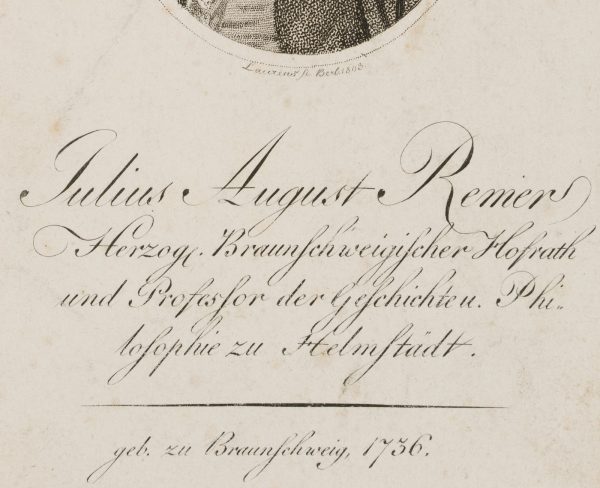 Laurens sc. Berl. 1803.
Julius August Remer
Herzogl. Braunschweigischer Hofrath
und Professor der Geschichte u. Phi-
losophie zu Helmstädt.
geb. zu Braunschweig, 1736.